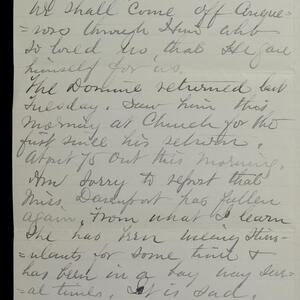 We shall come off conque-
rors through Him who
so loved us that He gave
himself for us.
The Dominie returned last
Tuesday. Saw him this
morning at Church for the
first since his return.
About 75 out this morning.
Am sorry to report that
Miss Davenport has fallen
again. From what I learn
she has been using stim-
ulants for some time &
has been in a bad way sev-
eral times. It is sad.